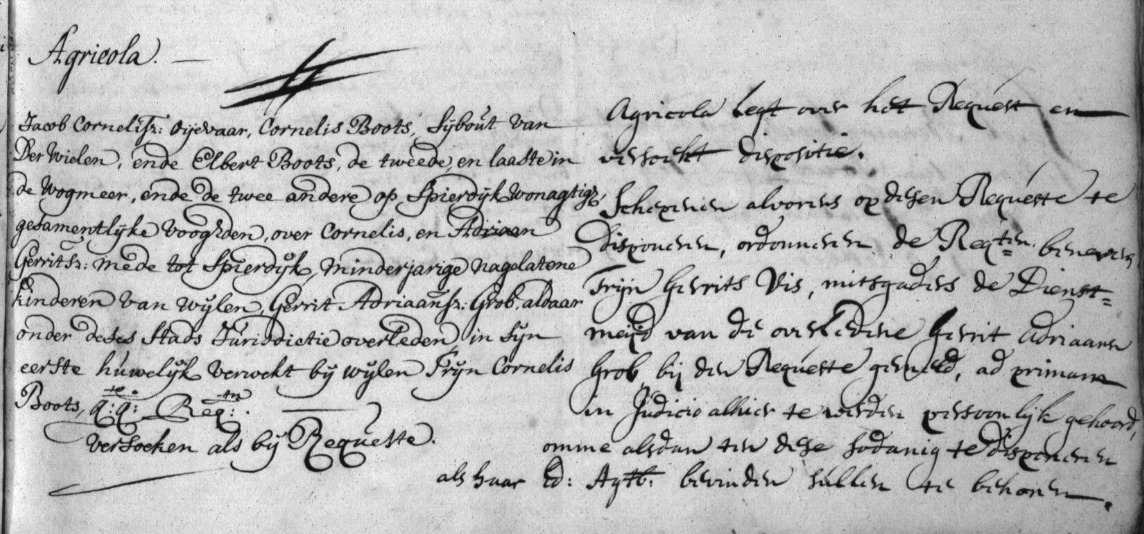 Agricola. —
Jacob Cornelisz: Oijevaar, Cornelis Boots, Sijbout van
Der Wielen, ende Elbert Boots, de tweede en laaste in
de Wogmeer, ende de twee andere op Spierdijk wonagtig,
gesamentlijke voogden, over Cornelis, en Adriaan
Gerritsz: mede tot Spierdijk, minderjarige nagelatene
kinderen van wijlen, Gerrit Adriaansz: Grob, aldaar
onder deses Stads Jurisdictie overleden in sijn
eerste huwelijk verwekt bij wijlen Trijn Cornelis
Boots, q:q: Reqtn:. —
versoeken als bij Requeste.
Agricola legt over het Request en
versoekt dispositie.
Schepenen alvorens op desen Requeste te
disponeren, ordonneren de Reqten: benevens
Trijn Gerrits Vis, mitsgaders de Dienst=
meijd van de overledene Gerrit Adriaans
Grob, bij den Requeste gemeld, ad primam
in Judicio alhier te werden persoonlijk gehoord,
omme alsdan ten dese sodanig te disponeren
als haar Ed: Agtb: bevinden sullen te behoren.